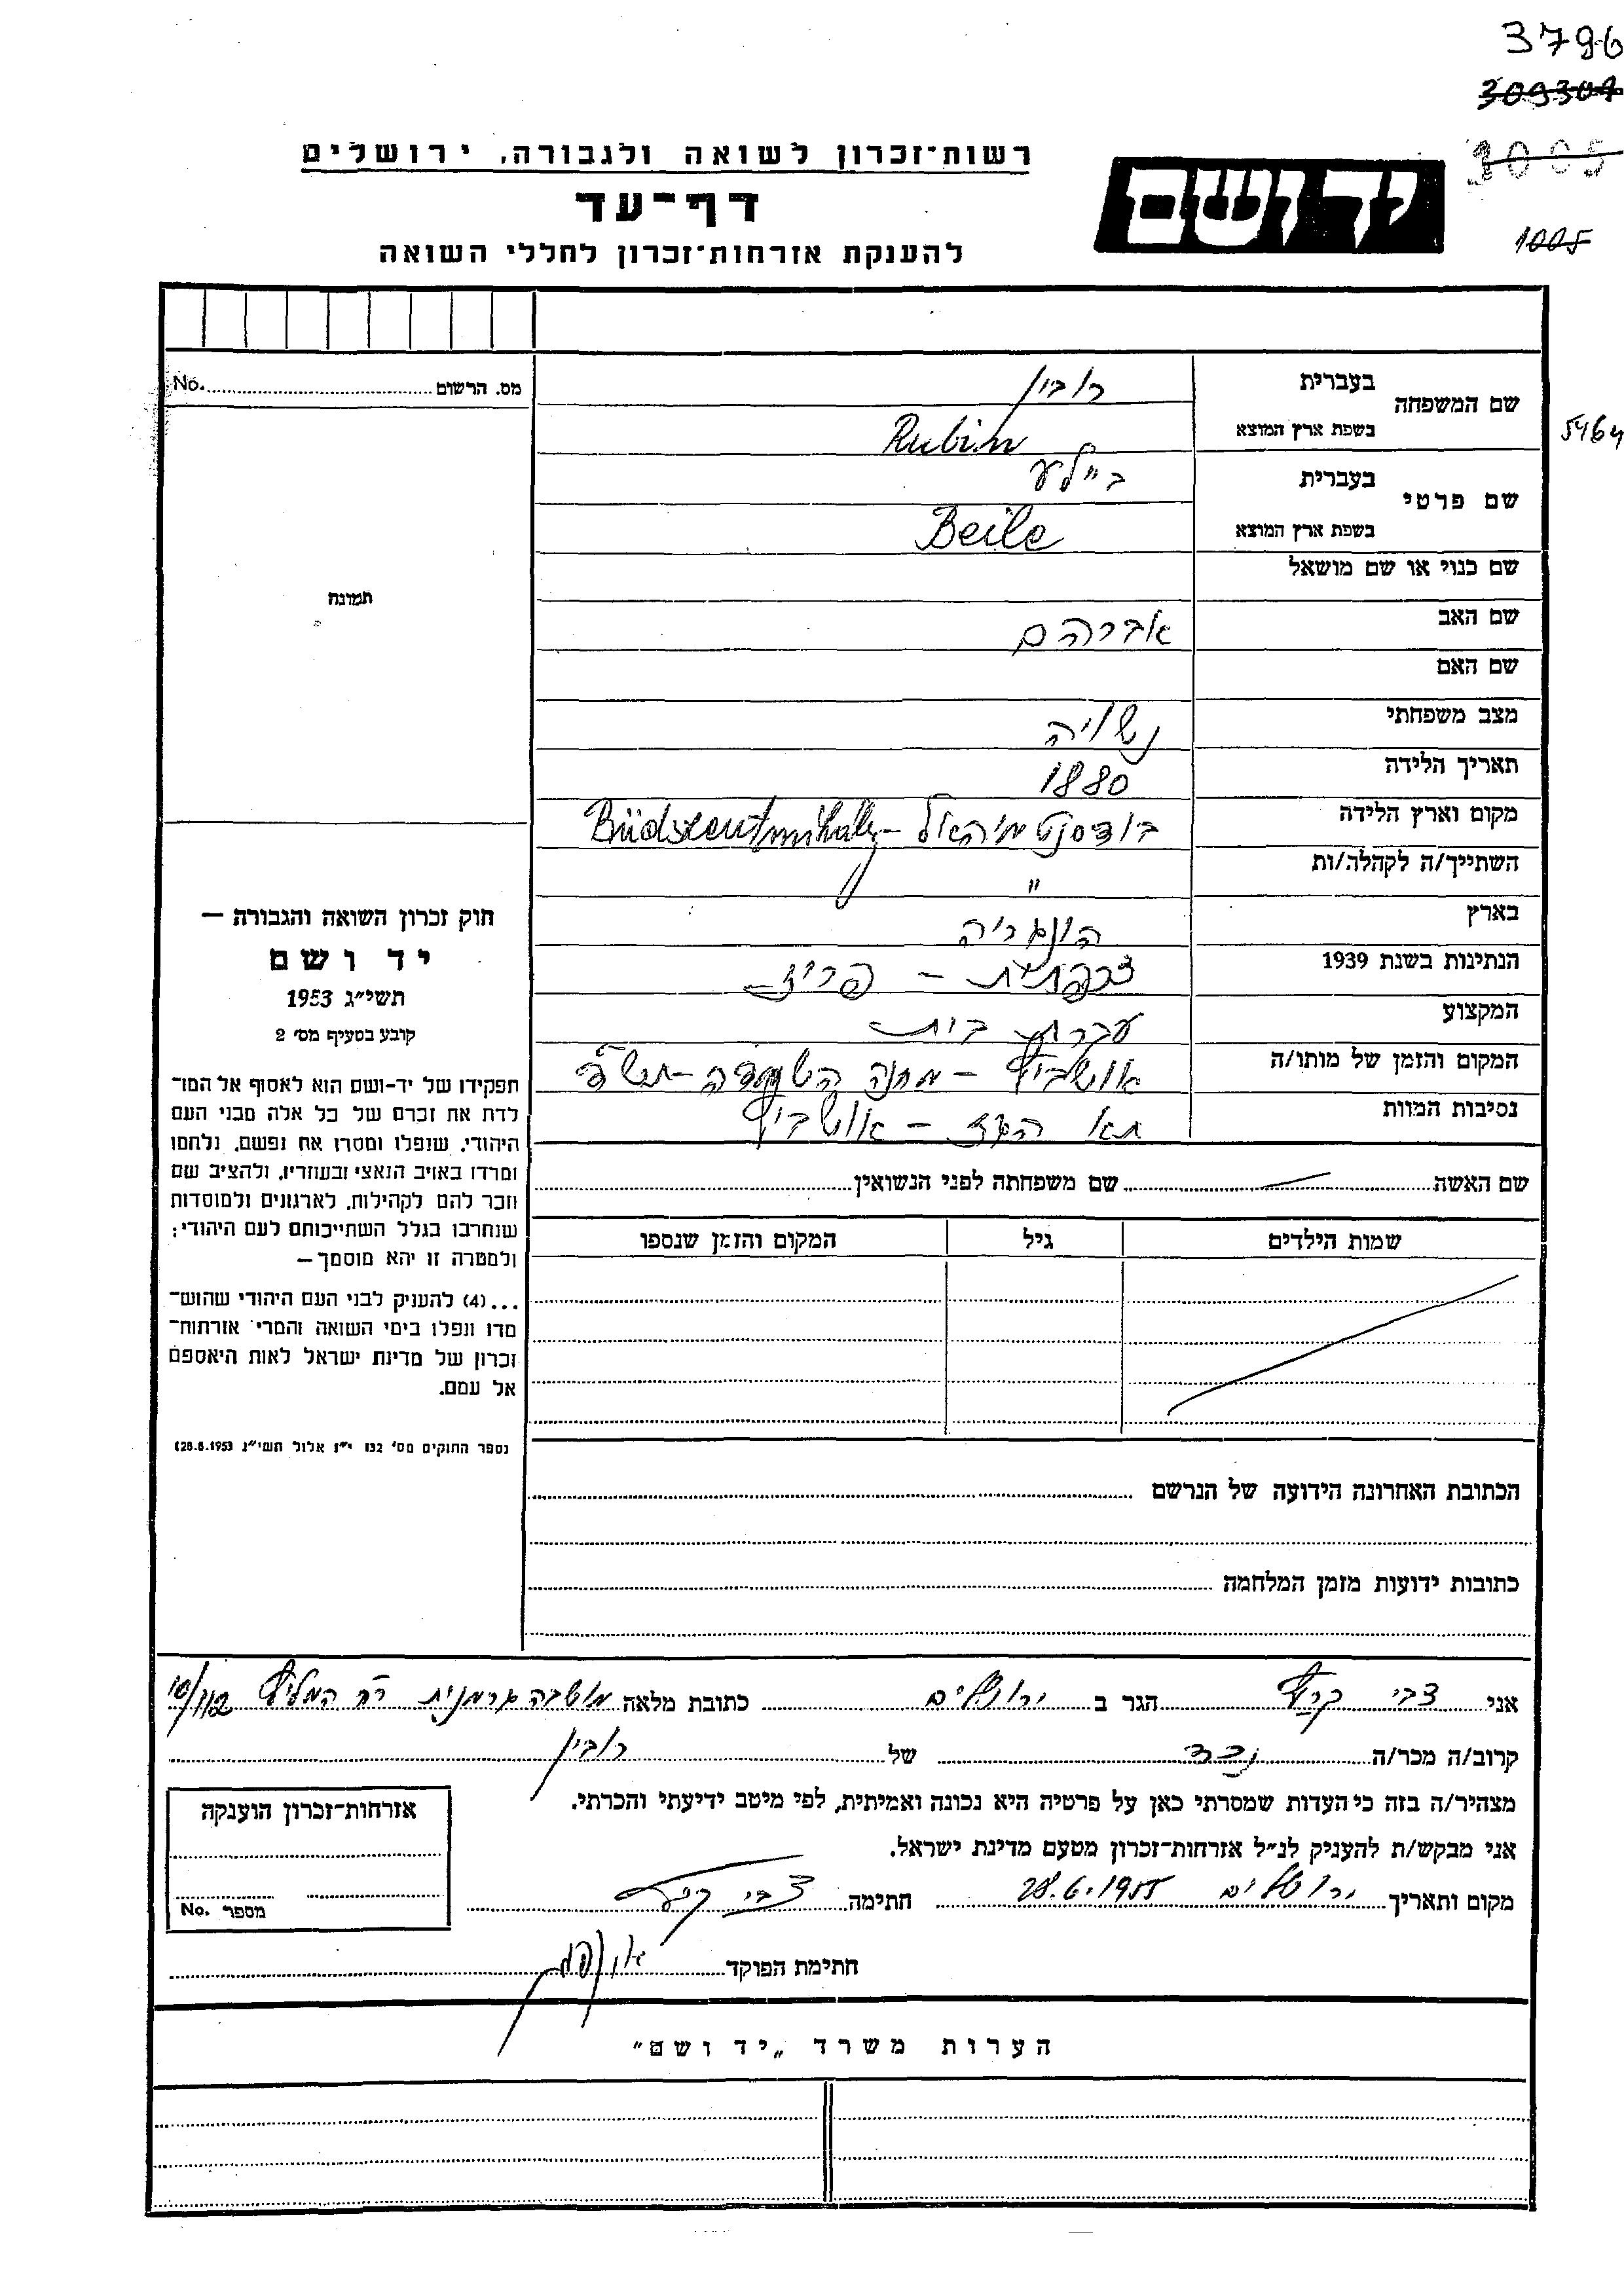 3796
309309
3005
1005
רשות־זכרון לשואה ולגבורה, ירושלים
דף־עד
להענקת אזרחות־זכרון לחללי השואה
יד ושם
5464
מס. הרשום No.
תמונה
שם המשפחה בעברית רובין
בשפת ארץ המוצא Rubin
שם פרטי בעברית ביילע
בשפת ארץ המוצא Beile
שם כנוי או שם מושאל
שם האב אברהם
שם האם
מצב משפחתי נשויה
תאריך הלידה 1880
מקום וארץ הלידה בודסנט מיהאל – Büdszentmihaly
השתייך/ה לקהלה/ות "
בארץ הונגריה
הנתינות בשנת 1939 צרפתית – פריז
המקצוע עקרת בית
המקום והזמן של מותו/ה אושביץ – מחנה השמדה – תש"ד
נסיבות המוות תא הגז – אושביץ
שם האשה שם משפחתה לפני הנשואין
שמות הילדים גיל המקום והזמן שנספו
הכתובת האחרונה הידועה של הנרשם
כתובות ידועות מזמן המלחמה
חוק זכרון השואה והגבורה —
יד ושם
תשי״ג 1953
קובע בסעיף מס׳ 2
תפקידו של יד-ושם הוא לאסוף אל המו־
לדת את זכרם של כל אלה מבני העם
היהודי, שנפלו ומסרו את נפשם, נלחמו
ומרדו באויב הנאצי ובעוזריו, ולהציב שם
וזכר להם לקהילות, לארגונים ולמוסדות
שנחרבו בגלל השתייכותם לעם היהודי;
ולמטרה זו יהא מוסמך —
...(4) להעניק לבני העם היהודי שהוש־
מדו ונפלו בימי השואה והמרי אזרחות־
זכרון של מדינת ישראל לאות היאספם
אל עמם.
(ספר החוקים מס׳ 132 י״ז אלול תשי״ג 28.8.1953)
אני צבי הגר ב ירושלים כתובת מלאה מושבה גרמנית רח' המליץ 10/112
קרוב/ה מכר/ה נכד של רובין
מצהיר/ה בזה כי העדות שמסרתי כאן על פרטיה היא נכונה ואמיתית, לפי מיטב ידיעתי והכרתי.
אני מבקש/ת להעניק לנ״ל אזרחות־זכרון מטעם מדינת ישראל.
מקום ותאריך ירושלים 28.6.1955 חתימה צבי
חתימת הפוקד
אזרחות־זכרון הוענקה
מספר No.
הערות משרד „יד ושם״